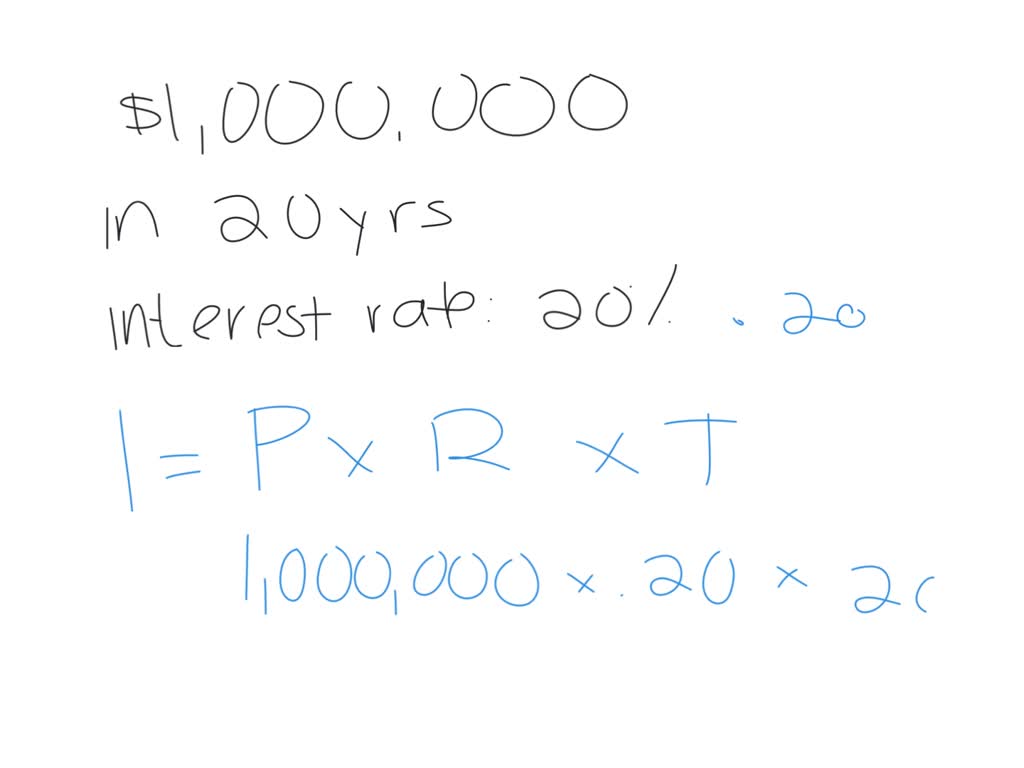 $1,000,000
in 20yrs
interest rate: 20% .20
I = P x R x T
1,000,000 x .20 x 2